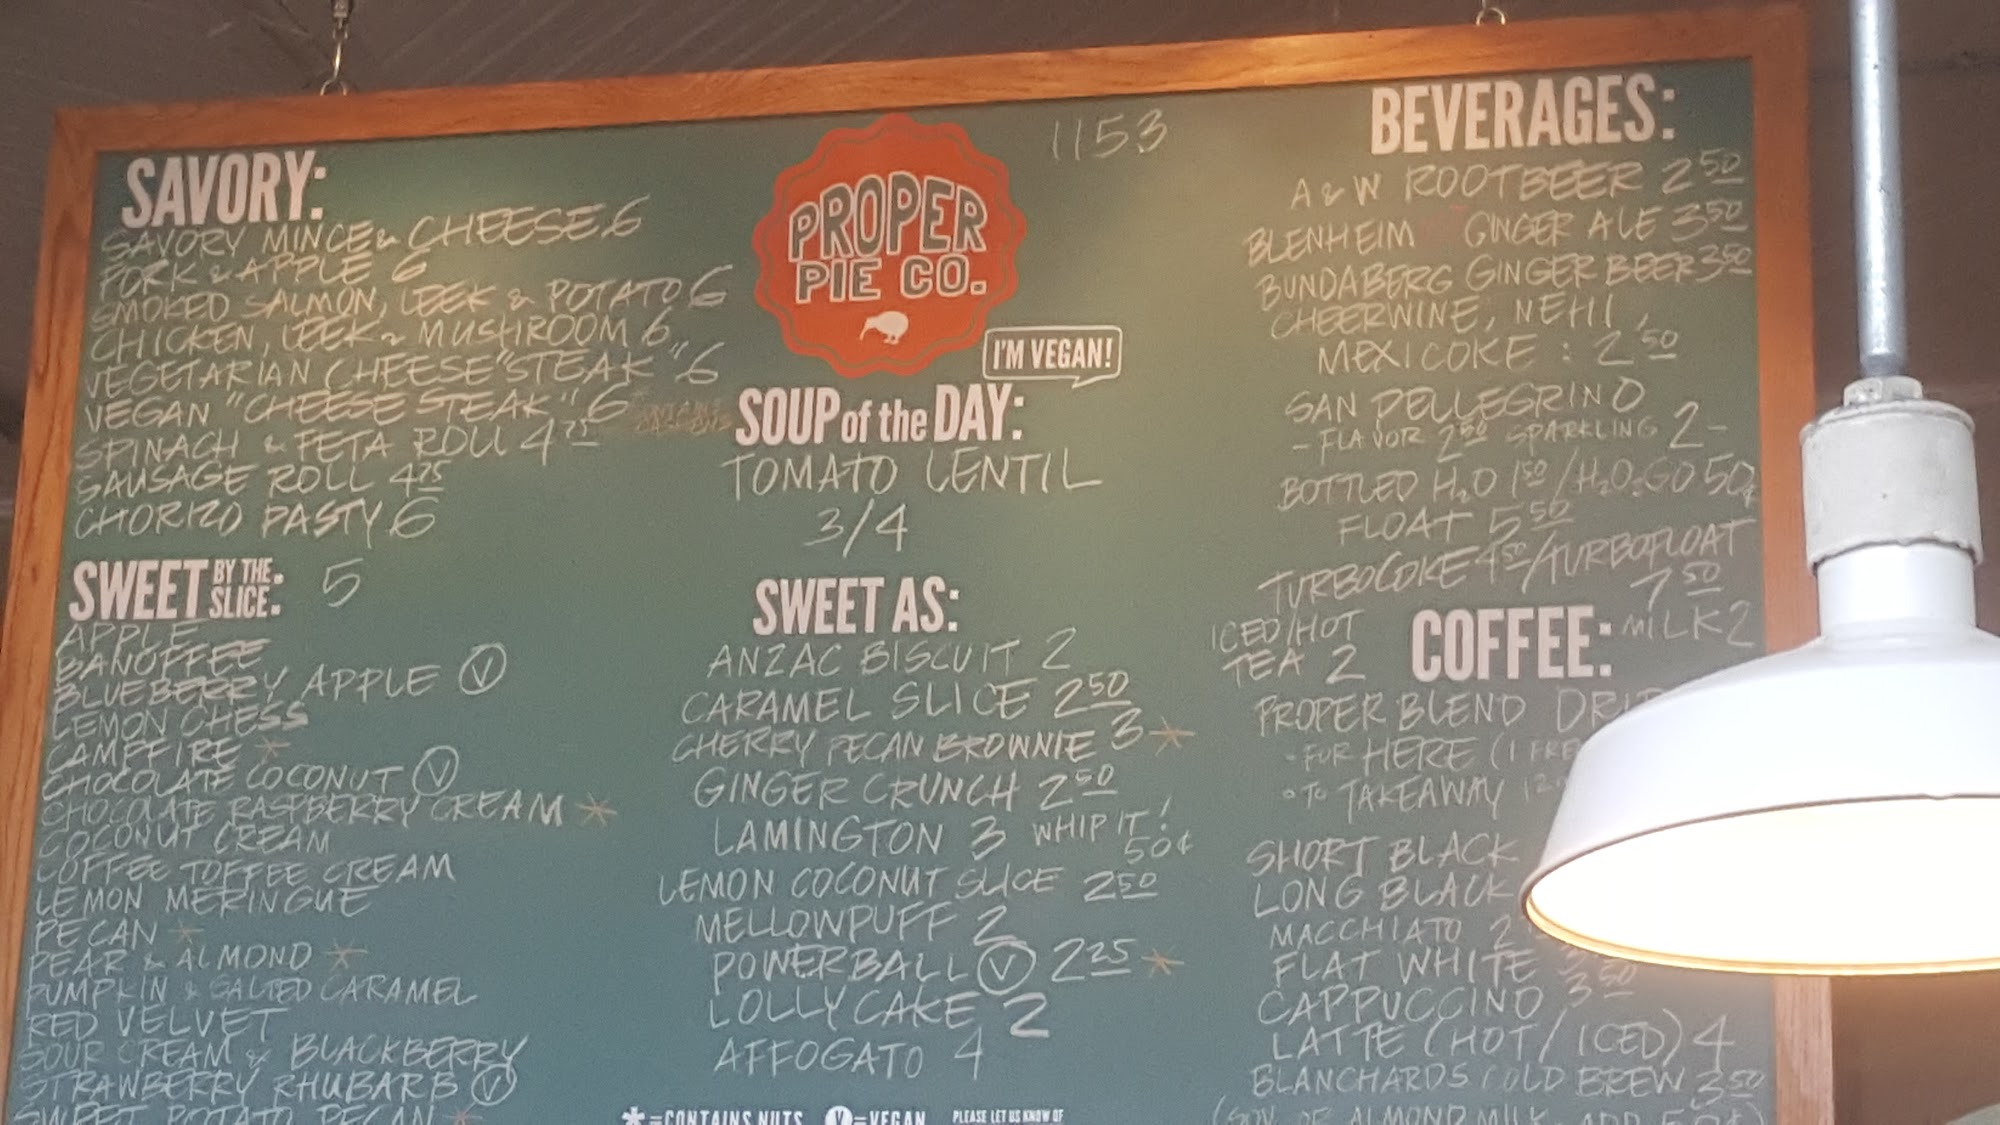 SAVORY:
SAVORY MINCE & CHEESE 6
PORK & APPLE 6
SMOKED SALMON, LEEK & POTATO 6
CHICKEN, LEEK & MUSHROOM 6
VEGETARIAN CHEESE "STEAK" 6
VEGAN "CHEESE STEAK" 6 CONTAINS CASHEWS
SPINACH & FETA ROLL 4 75
SAUSAGE ROLL 4 75
CHORIZO PASTY 6
SWEET BY THE SLICE: 5
APPLE
BANOFFEE
BLUEBERRY APPLE V
LEMON CHESS
CAMPFIRE *
CHOCOLATE COCONUT V
CHOCOLATE RASPBERRY CREAM *
COCONUT CREAM
COFFEE TOFFEE CREAM
LEMON MERINGUE
PECAN *
PEAR & ALMOND *
PUMPKIN & SALTED CARAMEL
RED VELVET
SOUR CREAM & BLACKBERRY
STRAWBERRY RHUBARB V
SWEET POTATO PECAN *
1153
PROPER
PIE CO.
I'M VEGAN!
SOUP of the DAY:
TOMATO LENTIL
3/4
SWEET AS:
ANZAC BISCUIT 2
CARAMEL SLICE 2 50
CHERRY PECAN BROWNIE 3 *
GINGER CRUNCH 2 50
LAMINGTON 3 WHIP IT! 50¢
LEMON COCONUT SLICE 2 50
MELLOWPUFF 2
POWERBALL V 2 25 *
LOLLYCAKE 2
AFFOGATO 4
* = CONTAINS NUTS V = VEGAN PLEASE LET US KNOW OF
BEVERAGES:
A & W ROOTBEER 2 50
BLENHEIM GINGER ALE 3 50
BUNDABERG GINGER BEER 3 50
CHEERWINE, NEHI,
MEXICOKE : 2 50
SAN PELLEGRINO
- FLAVOR 2 50 SPARKLING 2-
BOTTLED H2O 1 50 / H2O2GO 50¢
FLOAT 5 50
TURBOCOKE 4 50 / TURBOFLOAT
7 50
ICED/HOT
TEA 2
MILK 2
COFFEE:
PROPER BLEND
- FOR HERE (1
° TO TAKEAWAY
SHORT BLACK
LONG BLACK
MACCHIATO 2
FLAT WHITE
CAPPUCCINO 3 50
LATTE (HOT / ICED) 4
BLANCHARDS COLD BREW 3 50
(SOY OR ALMOND MILK - ADD 50¢)